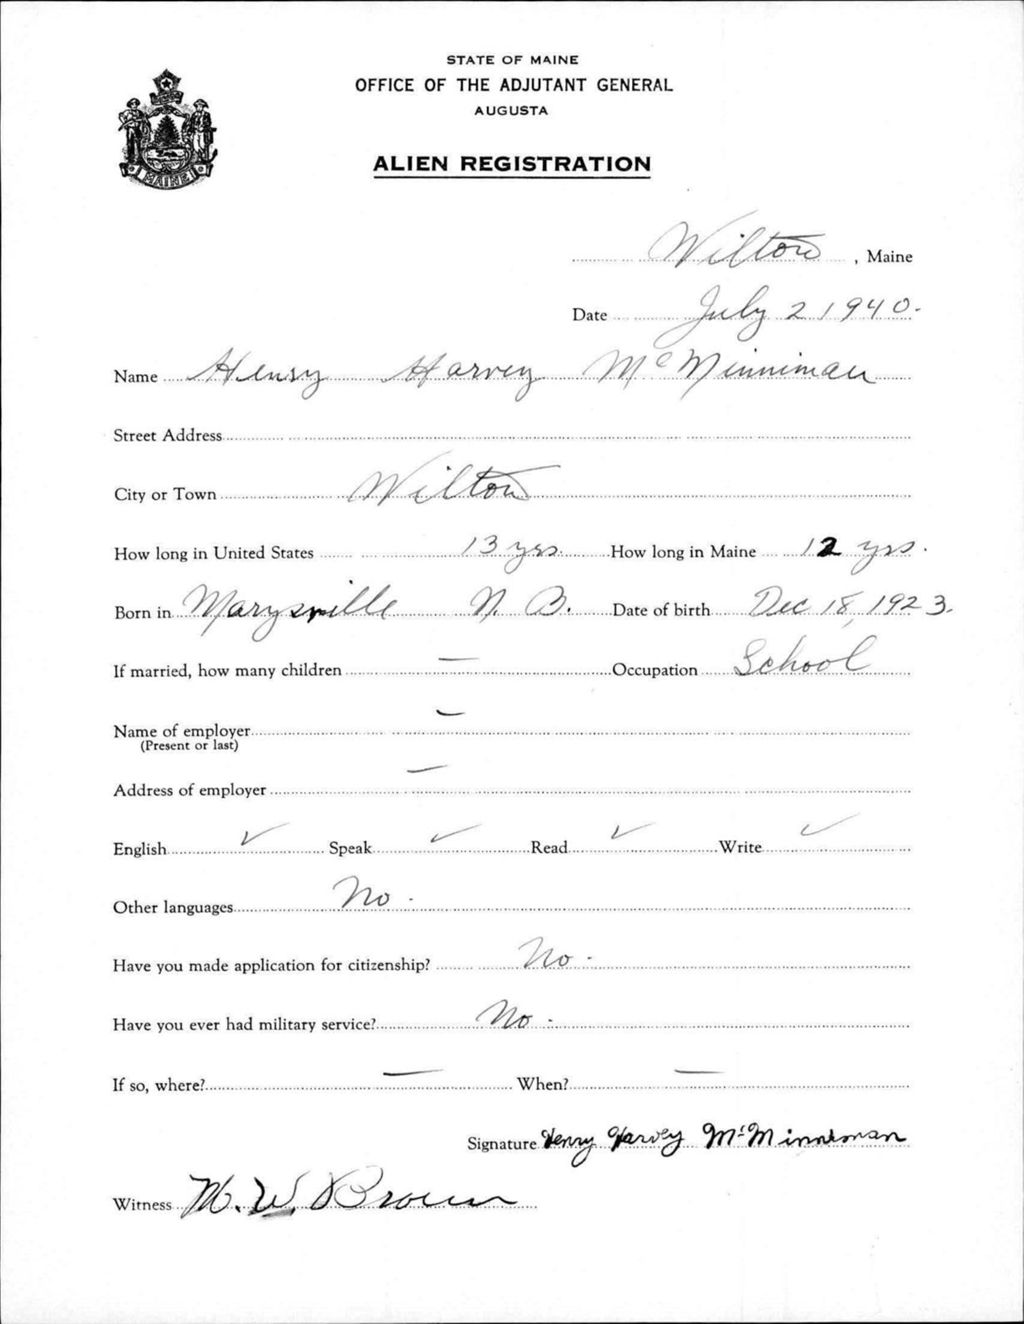 STATE OF MAINE
OFFICE OF THE ADJUTANT GENERAL
AUGUSTA
ALIEN REGISTRATION
MAINE
Wilton, Maine
Date July 2 1940.
Name Henry Harvey McMinniman
Street Address
City or Town Wilton
How long in United States 13 yrs. How long in Maine 12 yrs.
Born in Marysville N. B. Date of birth Dec 18, 1923.
If married, how many children — Occupation School
Name of employer —
(Present or last)
Address of employer —
English ✓ Speak ✓ Read ✓ Write ✓
Other languages No.
Have you made application for citizenship? No.
Have you ever had military service? No.
If so, where? — When? —
Signature Henry Harvey McMinniman
Witness M. W. Brown